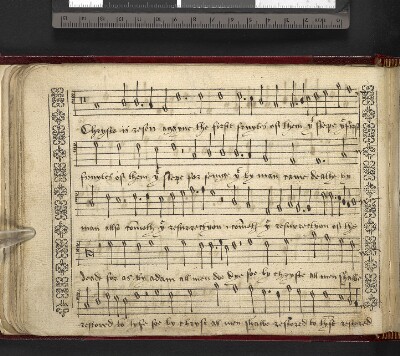 Chryste is risen agayne the first fruytes of them yt slepe
fruytes of them yt slepe for seinge yt by man came deathe by
man also cometh ye resurrectyon cometh ye resurrectyon of the
dead for as by adam all men doe dye soe by chryste all men shalbe
restored to lyfe soe by chryst all men shalbe restored to lyfe restored